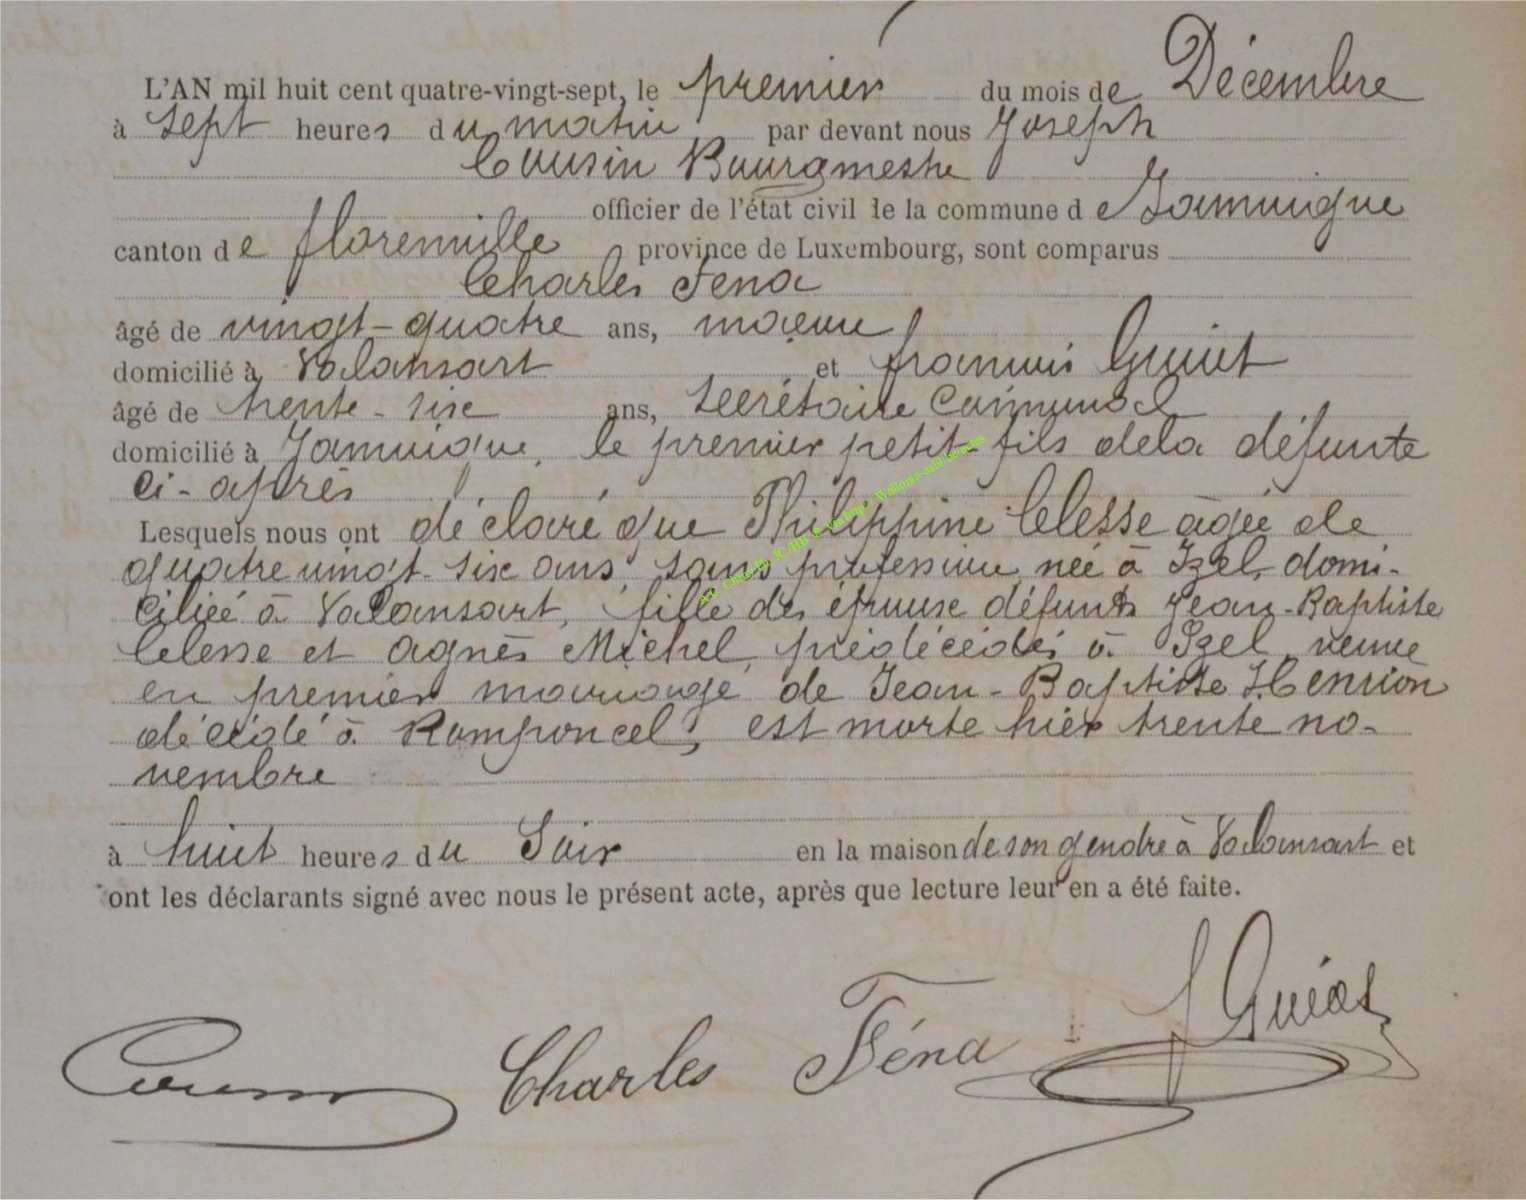 L'AN mil huit cent quatre-vingt-sept, le premier du mois de Décembre
à sept heures du matin par devant nous Joseph
Cousin Bourgmestre
officier de l'état civil de la commune de Jamoigne
canton de florenville province de Luxembourg, sont comparus
Charles Fena
âgé de vingt-quatre ans, maçon
domicilié à Valansart et françois Guiot
âgé de trente-six ans, secrétaire communal
domicilié à Jamoigne, le premier petit-fils dela défunte
ci-après
Lesquels nous ont déclaré que Philippine Clesse âgée de
quatre vingt-six ans, sans profession née à Izel, domi-
ciliée à Valansart, fille des époux défunts Jean-Baptiste
Clesse et agnès Michel, prédécédés à Izel, veuve
en premier mariage de Jean-Baptiste Henrion
décédé à Ramponcel, est morte hier trente no-
vembre
à huit heures du soir en la maison de son gendre à Valansart et
ont les déclarants signé avec nous le présent acte, après que lecture leur en a été faite.
Cousin Charles Féna J Guiot